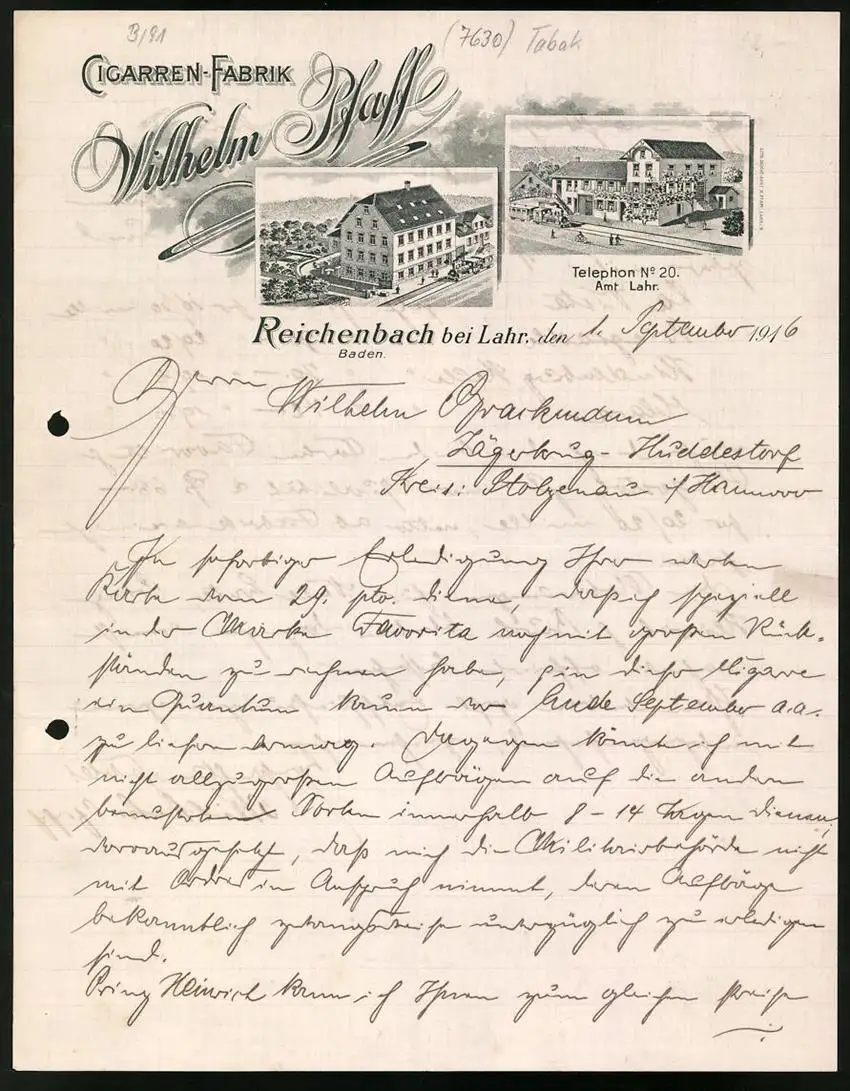 B/91
(7630) Tabak
CIGARREN-FABRIK
Wilhelm Pfaff
Telephon Nº 20.
Amt Lahr.
Reichenbach bei Lahr. den 1. September 1916
Baden.
Herrn
Wilhelm
Jägerkrug - Huddestorf
Kreis: Stolzenau i/Hannover
In sofortiger Erledigung Ihrer werten
Karte vom 29. pto. diene, daß ich speziell
in der Marke Favorita noch mit großen Rück-
ständen zu rechnen habe, & in dieser Cigarre
ein Quantum kaum vor Ende September a.a.
zu liefern vermag. Dagegen könnte ich mit
nicht allzugroßen Aufträgen auf die andern
bemusterten Sorten innerhalb 8 - 14 Tagen dienen,
vorausgesetzt, daß mich die Militairbehörde nicht
mit Ordres in Anspruch nimmt, deren Aufträge
bekanntlich zwangsweise unverzüglich zu erledigen
sind.
Prinz Heinrich kann ich Ihnen zum gleichen Preise